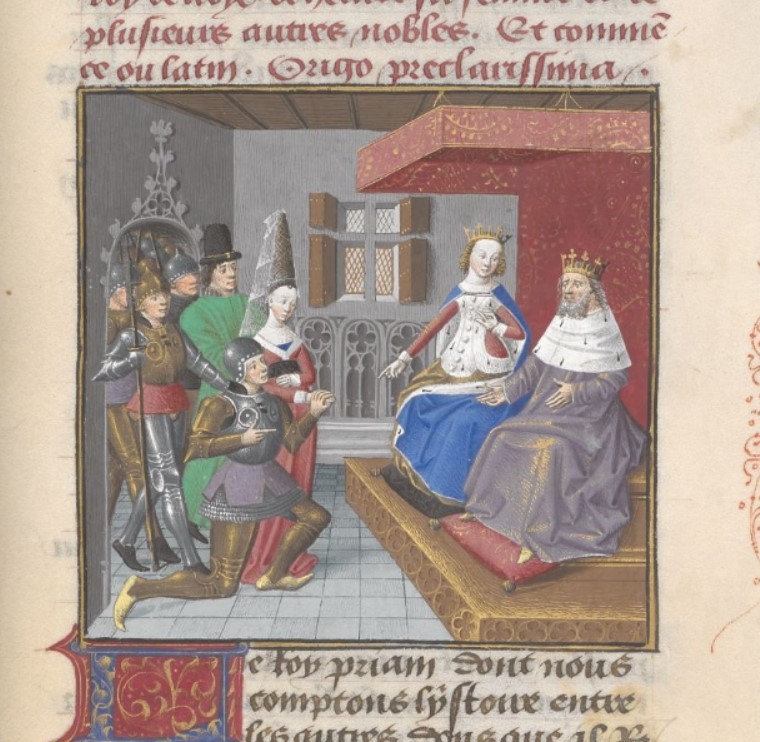 plusieurs autres nobles. Et commẽ
ce ou latin. Origo preclarissima.
Le roy priam dont nous
comptons lystoire entre
les autres dons que il